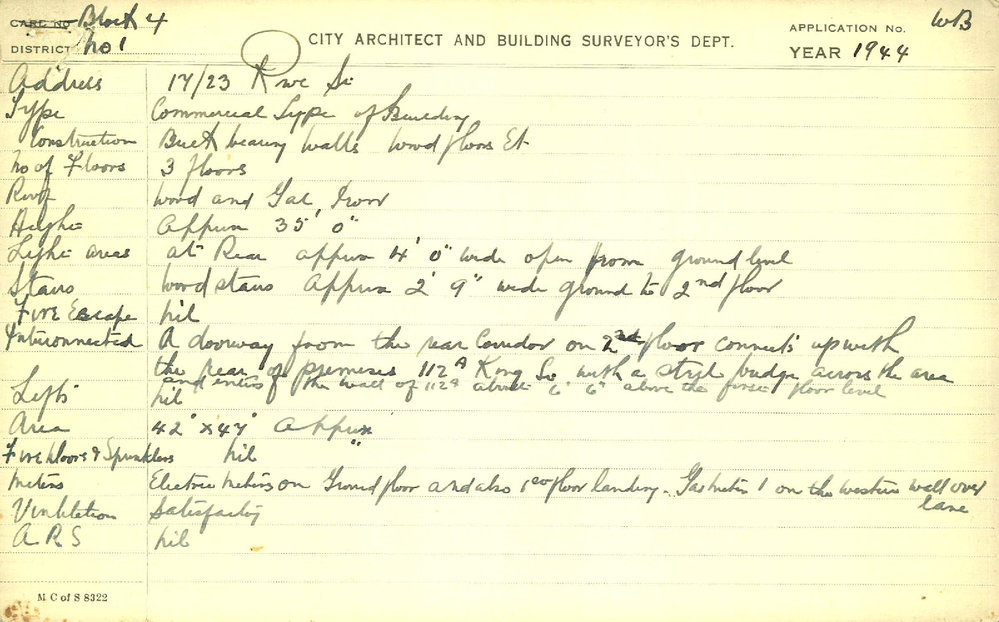 CARD NO. Block 4
DISTRICT No 1
CITY ARCHITECT AND BUILDING SURVEYOR'S DEPT.
APPLICATION No. WB
YEAR 1944
Address 17/23 Rowe St
Type Commercial Type of Building
Construction Brick bearing walls Wood floors Etc
No of Floors 3 floors
Roof Wood and Gal Iron
Height Approx 35' 0"
Light areas at Rear approx 4' 0" wide open from ground level
Stairs Wood stairs Approx 2' 9" wide ground to 2nd floor
Fire Escape Nil
Interconnected A doorway from the rear corridor on 2nd floor connects up with
the rear of premises 112A King St with a style bridge across the area
and enters the wall of 112A about 6' 6" above the first floor level
Lifts Nil
Area 42' x 47' Approx
Fire Doors & Sprinklers Nil "
Meters Electric Meters on Ground floor and also 1st floor landing. Gas meter 1 on the western wall over
lane
Ventilation Satisfactory
A R S Nil
M C of S 8322